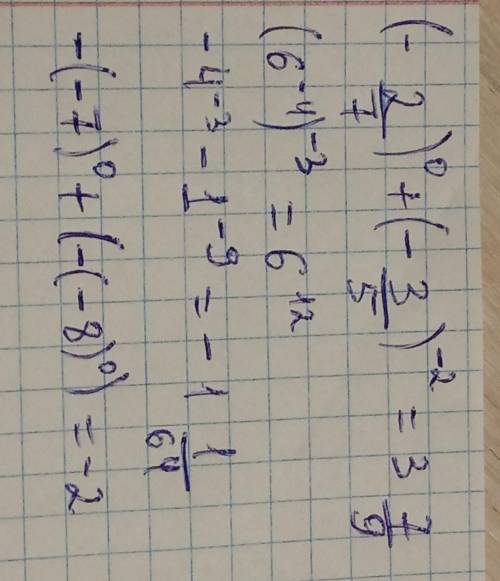 (- 2/7)⁰ + (- 3/5)⁻² = 3 7/9
(6⁻⁴)⁻³ = 6¹²
- 4⁻³ - 1⁻⁹ = - 1 1/64
- (-7)⁰ + (-(-8)⁰) = -2